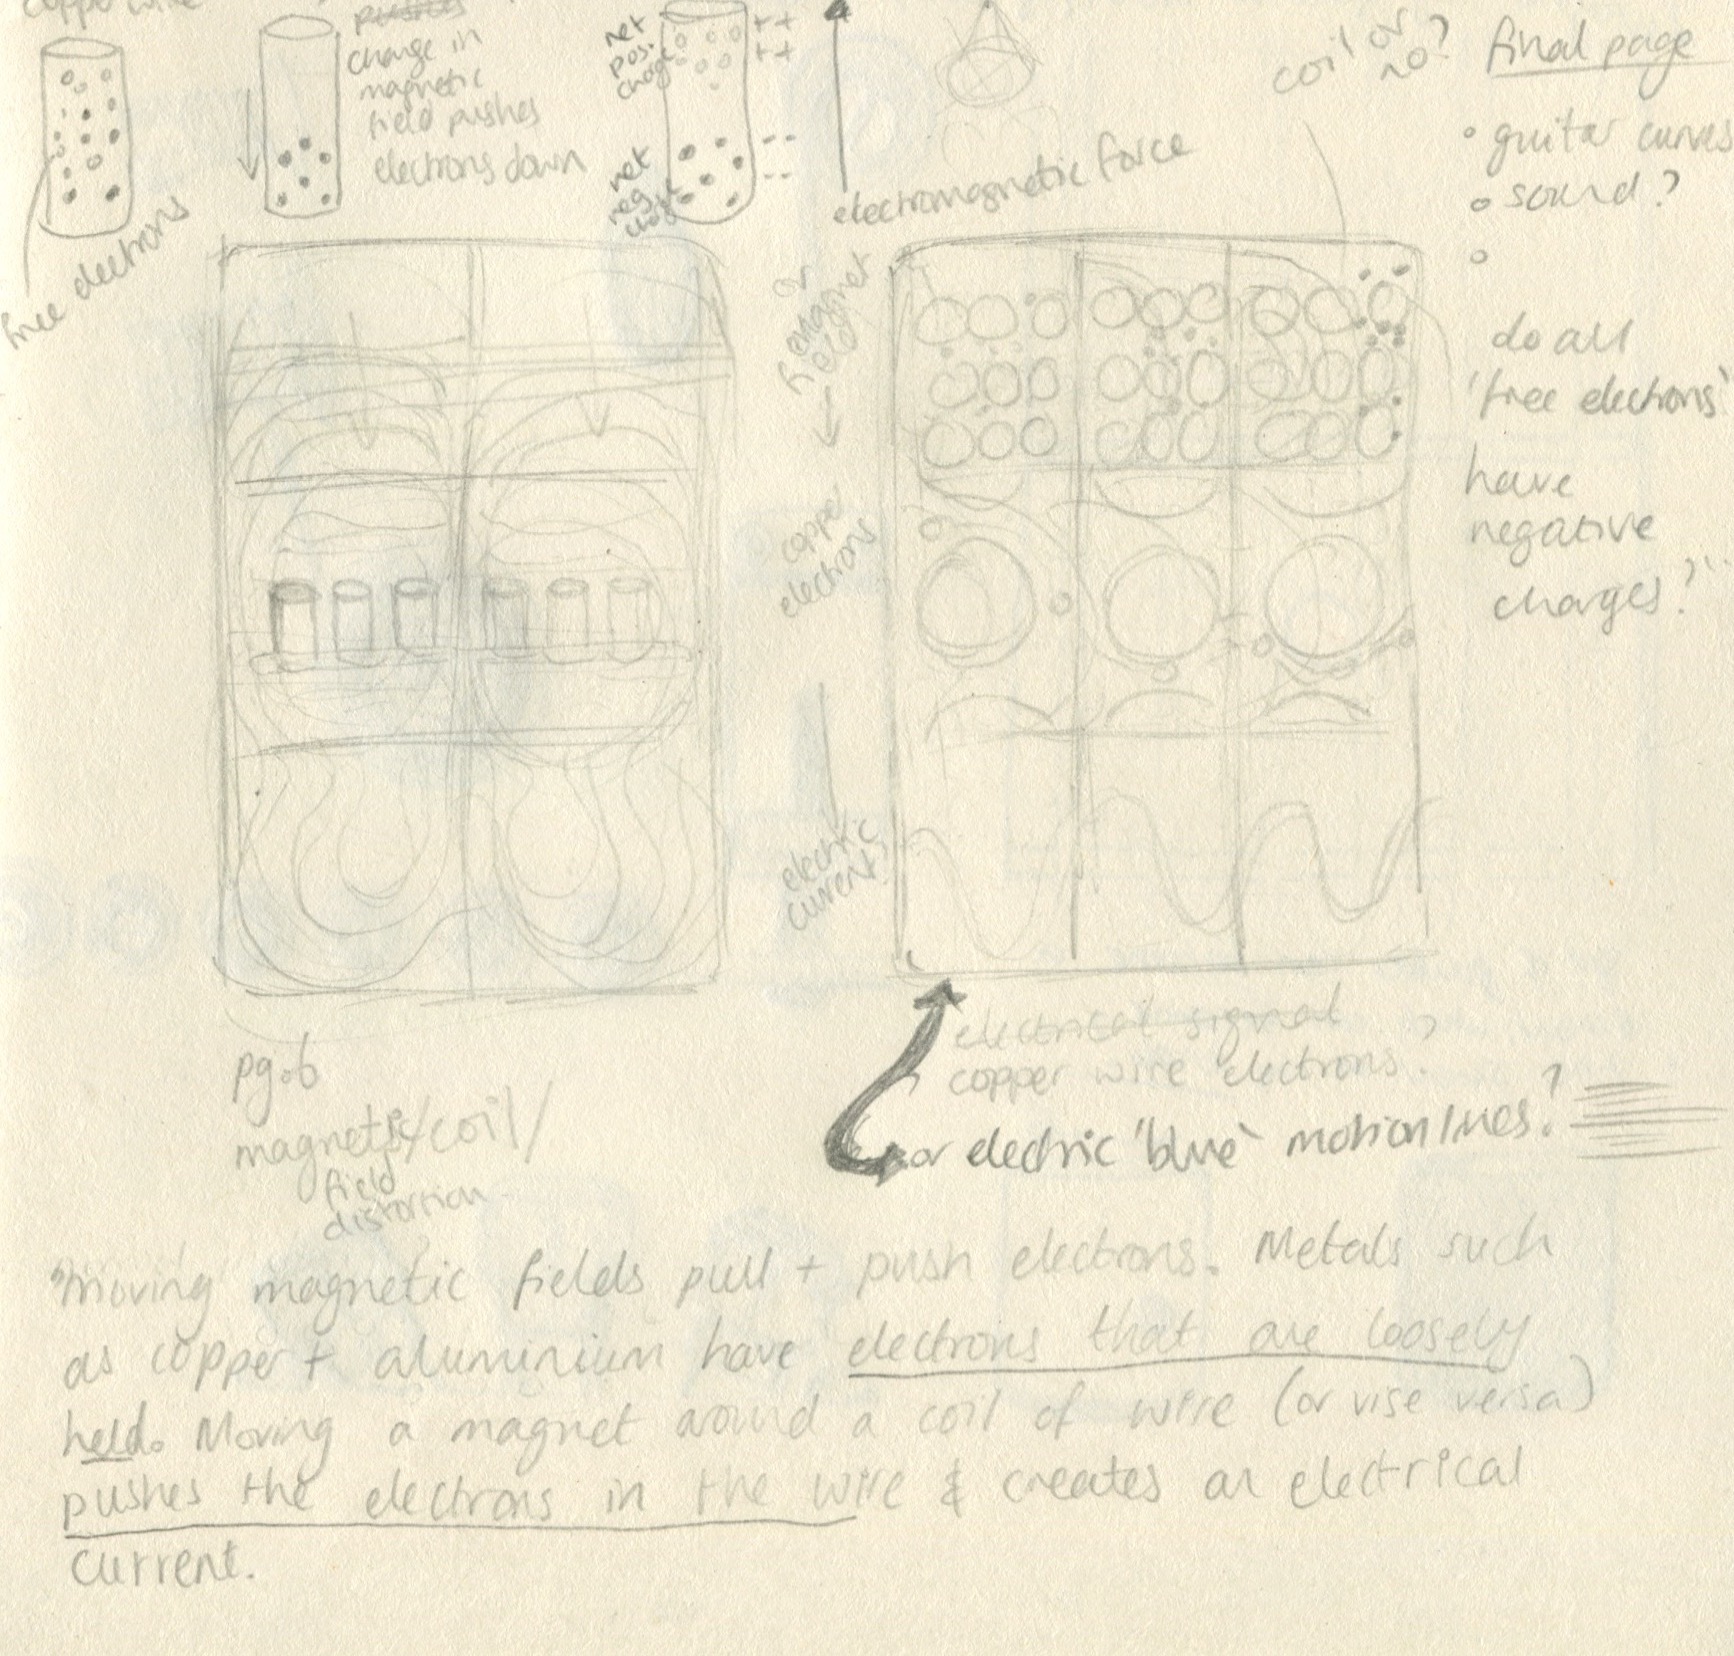 copper wire
pushes
change in
magnetic
field pushes
electrons down
free electrons
net
pos.
charge
++
++
net
neg
charge
--
--
electromagnetic force
coil or
no?
final page
guitar curves
sound?
do all
'free electrons'
have
negative
charges?
or
magnet
field
copper
electrons
electric
current
pg.6
magnetic/coil/
field
distortion
electrical signal
copper wire electrons?
or electric 'blue' motion lines?
"Moving magnetic fields pull + push electrons. Metals such
as copper + aluminium have electrons that are loosely
held. Moving a magnet around a coil of wire (or vise versa)
pushes the electrons in the wire & creates an electrical
current.